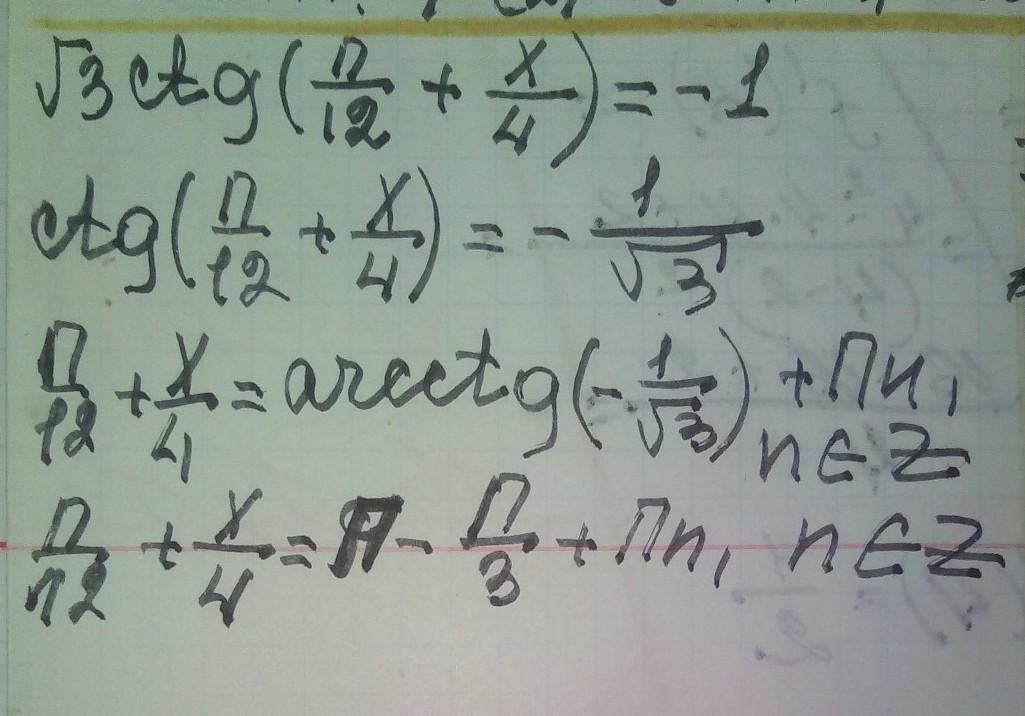 √3 ctg(п/12 + x/4) = -1
ctg(п/12 + x/4) = - 1/√3
п/12 + x/4 = arcctg(-1/√3) + Пn, n∈Z
п/12 + x/4 = П - П/3 + Пn, n∈Z